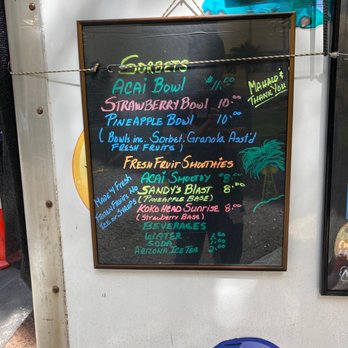 SORBETS
ACAI BOWL $11.00
STRAWBERRY BOWL 10.00
PINEAPPLE BOWL 10.00
(Bowls inc. Sorbet, Granola Asst'd
FRESH FRUITS)
MAHALO &
THANK YOU
FRESH FRUIT SMOOTHIES
ACAI SMOOTEY $8.00
SANDY'S BLAST 8.00
(PINEAPPLE BASE)
KOKO HEAD SUNRISE 8.00
(Strawberry BASE)
MADE w/ FRESH
ICE or SYRUPS
BEVERAGES
WATER 2.00
SODA 2.00
ARIZONA ICE TEA 2.00